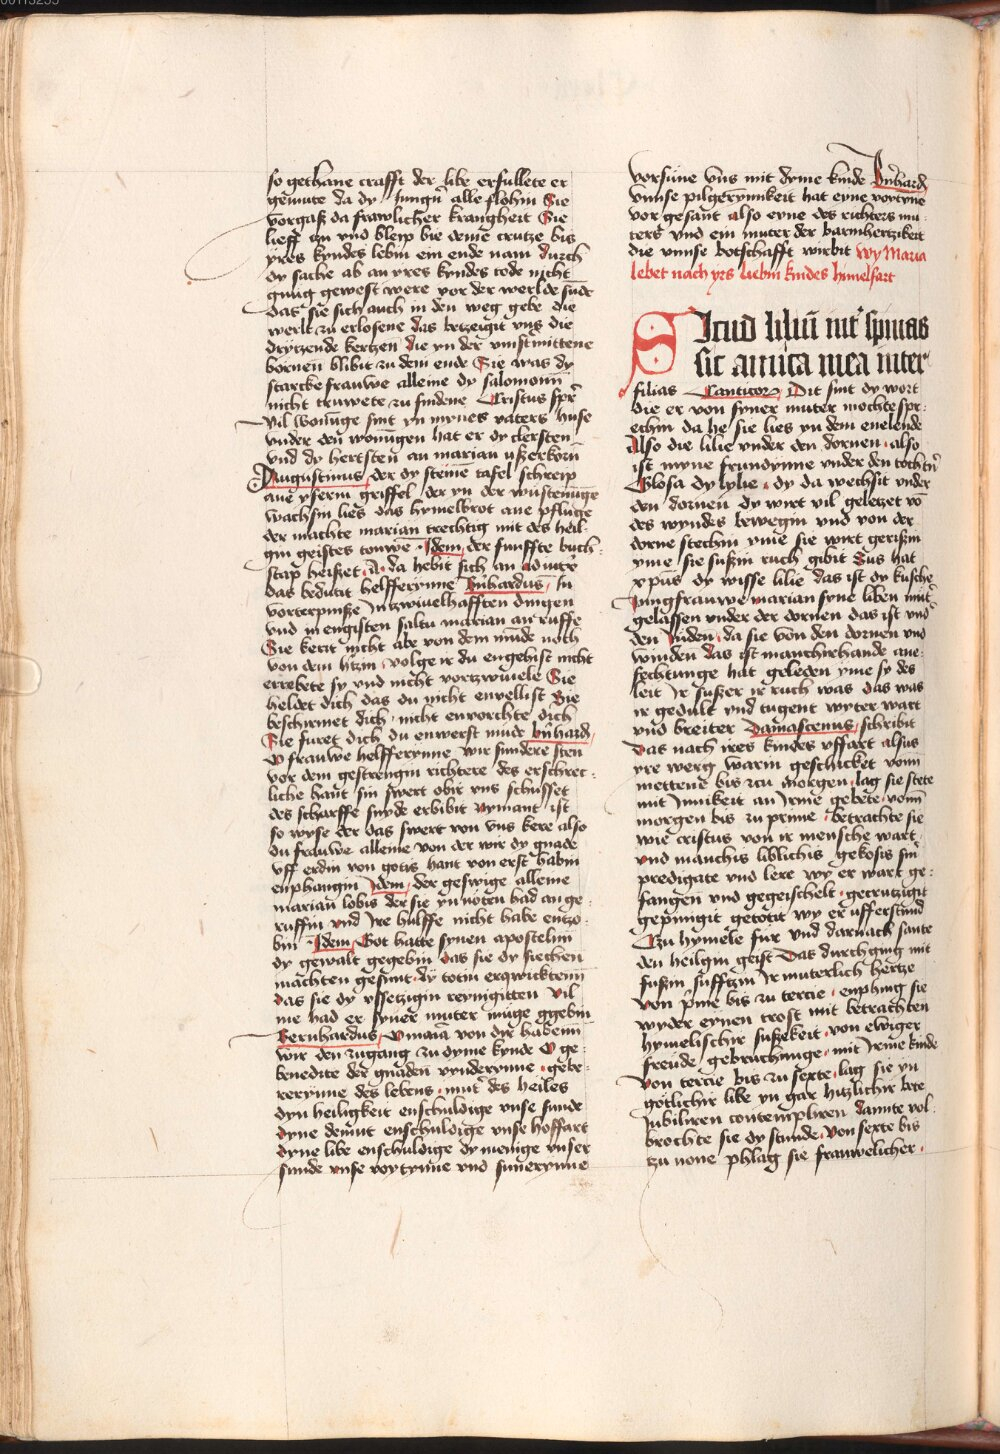 so gethane crafft der libe erfullete er
gemute da dy Jungn̄ alle flohin Sie
vorgaß da frawlicher krangheit Sie
lieff czu vnd bleip bie deme crutze bis
yres kyndes lebin em ende nam durch
dy sache ab an yres kyndes tode nicht
gnug gewest were vor der werlde sūde
das sie sich auch in den weg gebe die
werlt zu erlosene das betzeigit vns die
drytzende kertzen die yn der vinstmittene
bornen blibit zu dem ende Sie was dy
starcke frauwe alleine dy salomonn
nicht truwete zu findene Cristus spr̄
vil wonūge sint yn mynes vaters huse
vnder den wonūgen hat er dy clersten
vnd dy hertsten an marian vßerkorn
Augustinus der dy steinē tafel schreip
ane ysern griffel der yn der wusteniūge
wachsin lies das hymelbrot ane pfluge
der machte marian trechtig mit des heil
gin geistes touwe Idem der funffte buch
stap heißet A da hebit sich an aduatrix
das bedutit helfferynne Bn̄hardus In
vorterpniße In tzwiuelhafften dingen
vnd in engisten saltu marian an ruffe
Sie kerit nicht abe von dem munde noch
von dem h'tzin volge ir du engehist nicht
errebete sy vnd nicht vortzwiuele Sie
heldet dich das du nicht envellist Sie
beschirmet dich nicht envorchte dich
Sie furet dich du enwerst mude bn̄hard
O frauwe helfferynne wir sundere sten
vor dem gestrengin richtere des erschrec
liche hant sin swert obir vns schusset
des scharffe snyde erbibit nymant ist
so wyse der das swert von vns kere also
du frauwe alleine von der wir dy gnade
vff erdin von gotis hant von erst habin
enphangin Idem der geswige alleine
marian lobis der sie yn noten had an ge
ruffin vnd Ire hulffe nicht habe entzo
bin Idem Got hatte synen apostelin
dy gewalt gegebin das sie dy siechen
machten gesunt dy totin erqwicktenn
das sie dy vssetzigin reynigitten Vil
me had er syner muter muge ggebin
Bernhardus O maria von dir habenn
wir den zugang zu dyme kynde O ge
benedite der gnaden vynderynne gebe
rerynne des lebens mut' des heiles
dyn heiligkeit enschuldige vnse sunde
dyne demut enschuldige vnse hoffart
dyne libe enschuldige dy menige vnser
sunde vnse vortynne vnd sunerynne
vorsune vns mit dyme kinde Bn̄hard
vnnse pilgerymikeit hat eyne vortyne
vor gesant also eyne des richters mu
ters vnd ein muter der barmhertzikeit
die vnnse botschafft wirbit wy Maria
lebet nach yrs liebin kindes himelfart
SIcud liliū int' spinas
sic amica mea inter
filias Canticor̄ Dit sint dy wort
die er von syner muter mochte spr
echin da he sie lies yn dem enelende
Also die lilie vnder den dornen also
ist myne frundynne vnder den tochtn̄
Glosa dy lylie dy da wechsit vnder
den dornen dy wirt vil geletzet vō
des wyndes bewegin vnd von der
dorne stechin yme sie wirt gerißin
yme sie sußin ruch gibit Sus hat
xpūs dy wisse lilie das ist dy kusche
Jungfrauwe marian syne liben mut'
gelassen vnder der dornen das ist vnd'
den Juden da sie von den dornen vnd
winden das ist manchirhande ane
fechtunge hat geleden yme sy des
leit Ir sußer ir ruch was das was
ir gedult vnd tugent wyter wart
vnd breiter Damascenus schribit
Das nach ires kindes vffart alsus
yre werg warin geschicket vonn
mettene bis zcu morgen lag sie stete
mit Innikeit an Irme gebete vonn
morgen bis zu prime betrachte sie
wie cristus von ir mensche wart
vnd manchis liblichis gekosis sin
predigate vnd lere wy er wart ge
fangen vnd gegeischelt gecrutzigit
gepinigit getotit wy er vfferstund
Czu hymele fur vnd darnach sante
den heilgin geist Das durchging mit
sußin sufftzin Ir muterlich hertze
Von p'me bis zu tercie enphing sie
wyder eynen trost mit betrachten
hymelischir sußekeit von ewiger
freude gebruchunge mit Irme kinde
Von tercie bis zu sexte lag sie yn
gotlichir libe yn gar hitzlichir bete
Jubiliren contempliren damite vol
brochte sie dy stunde Von sexte bis
tzu none phlag sie frauwelicher